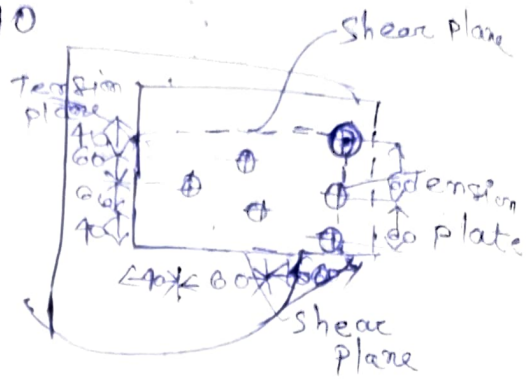 10
Shear plane
Tension
plane
40
60
60
40
Tension
60 plate
40 60
Shear
plane